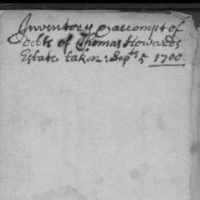 Inventory & accompt of
debts of Thomas Howards
Estate taken: Sept 5 1700